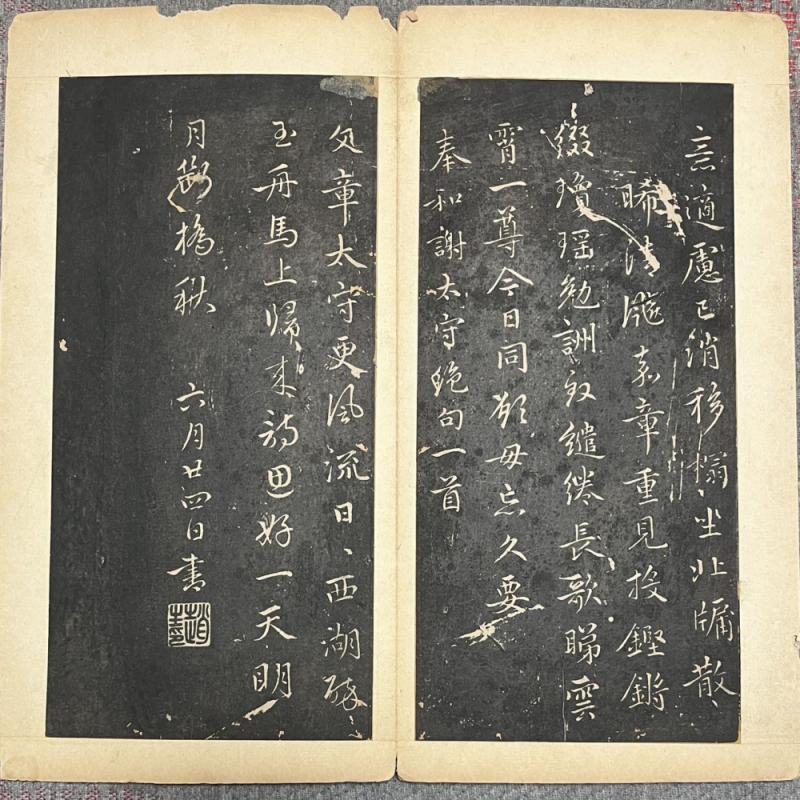 意適慮已消移榻坐北牖散
晞清飈嘉章重見投鏗鏘
綴瓊瑤勉詶叙繾綣長歌睇雲
霄一尊今日同願毋忘久要
奉和謝太守絕句一首
文章太守更風流日〻西湖醉
玉舟馬上歸來詩思好一天明
月斷橋秋 六月廿四日書